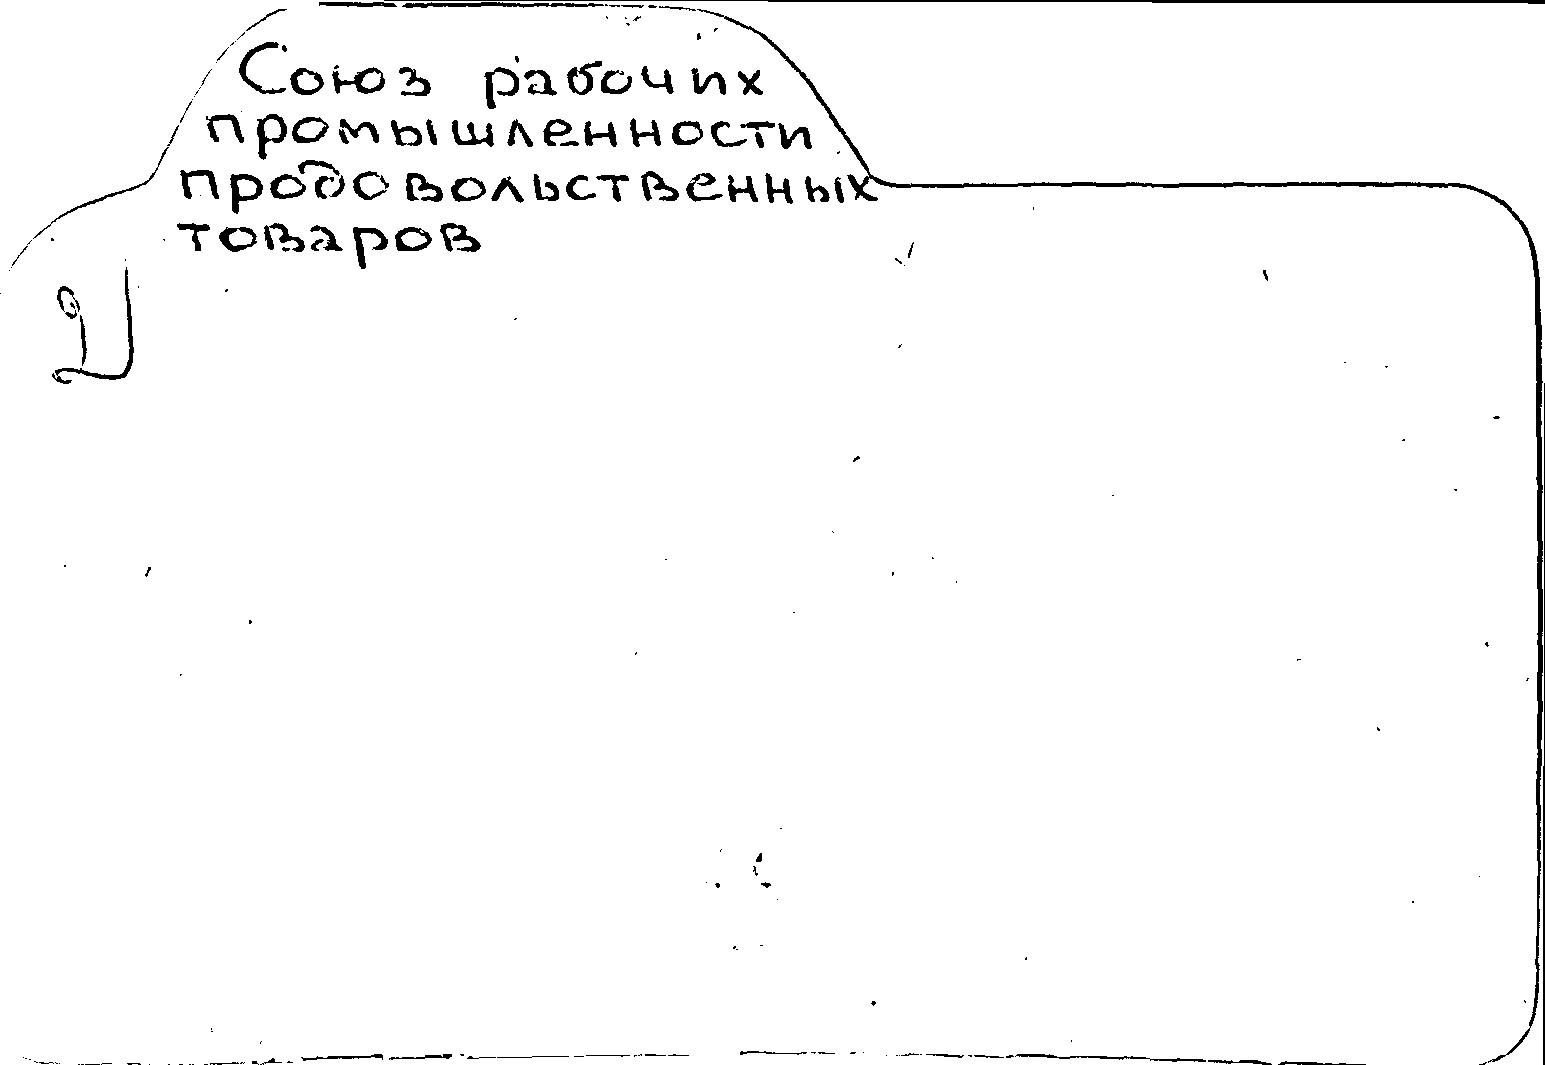 Союз рабочих
промышленности
продовольственных
товаров